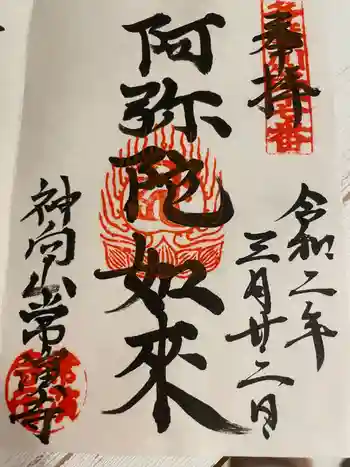 奉拝
令和二年
三月廿二日
阿弥陀如來
神向山常寳寺